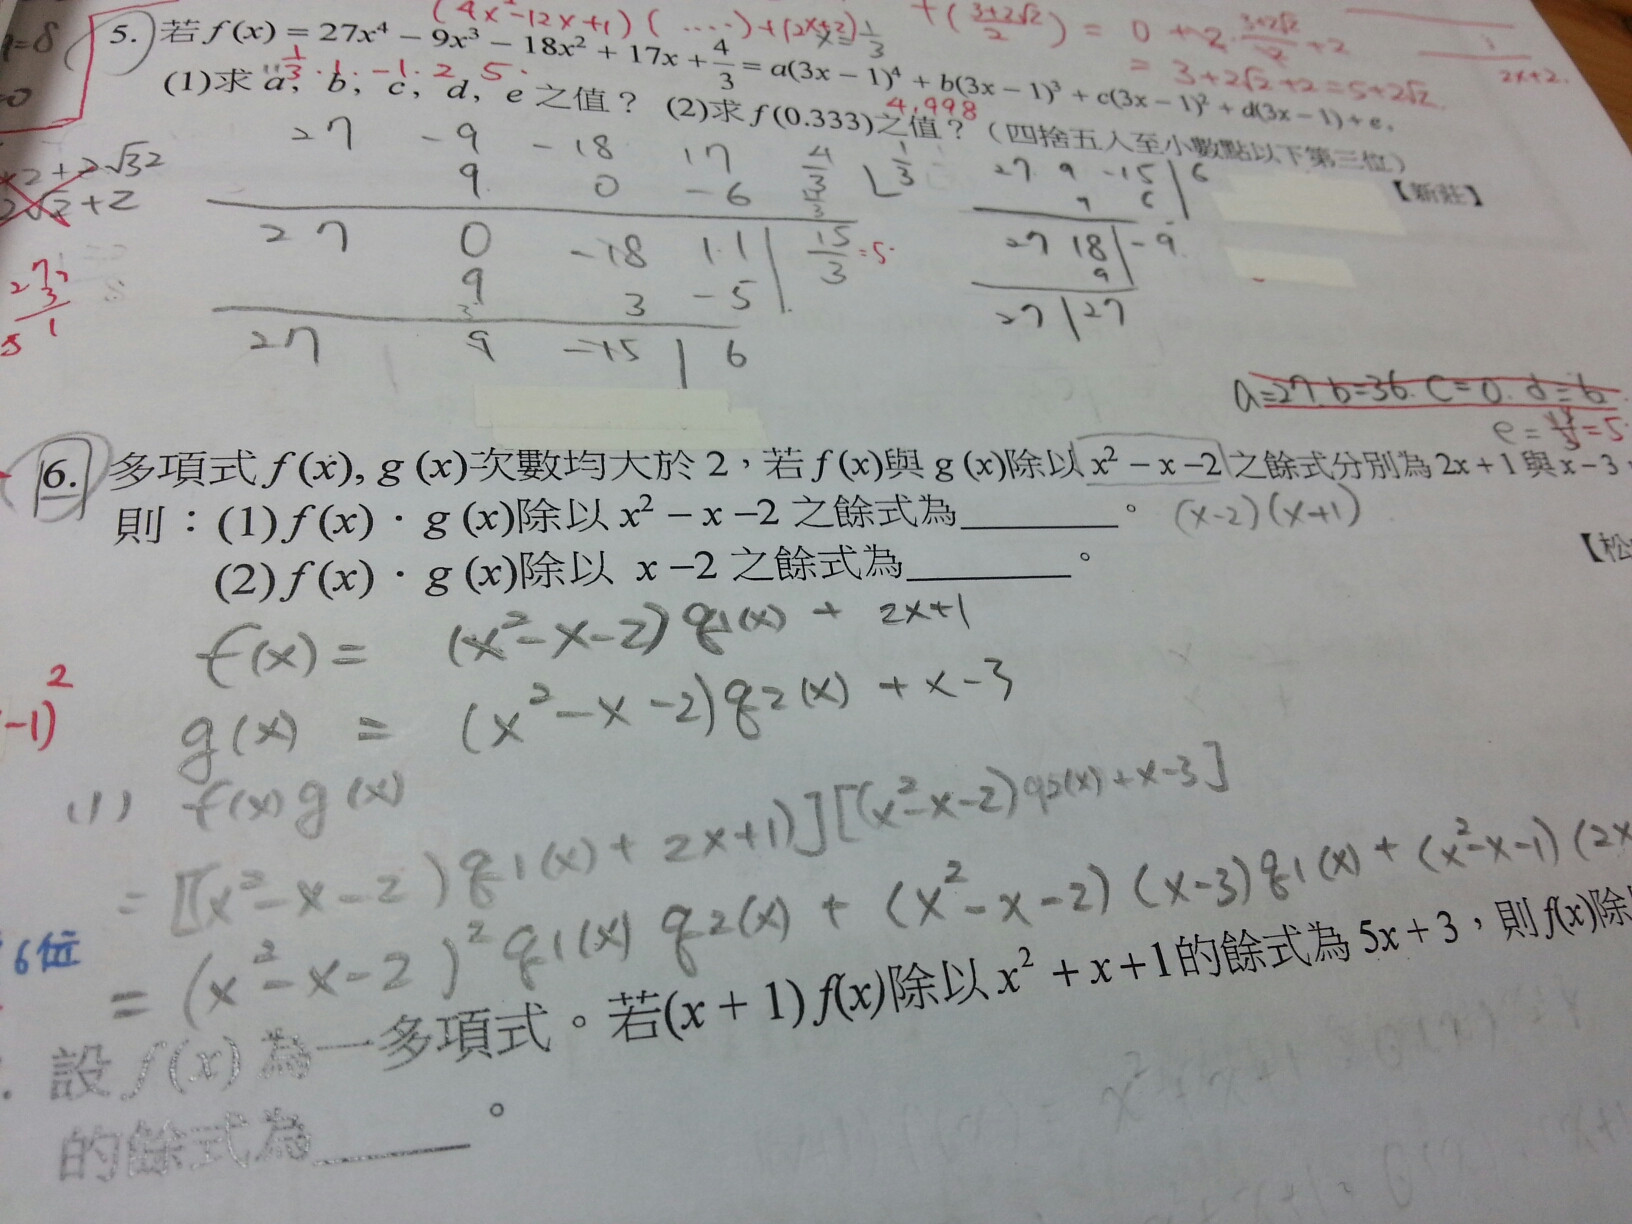 =8
=0
(4x²-12x+1)(.....)+(2x+2)
x=1/3
+(3+2√2/2) = 0+2·3+2√2/2+2
= 3+2√2+2=5+2√2
2x+2.
5. 若 f(x) = 27x⁴ − 9x³ − 18x² + 17x + 4/3 = a(3x − 1)⁴ + b(3x − 1)³ + c(3x − 1)² + d(3x − 1) + e,
1/3 · 1 · -1 · 2 5 ·
(1)求 a, b, c, d, e 之值? (2)求 f(0.333)之值?(四捨五入至小數點以下第三位)
4.998
【新莊】
27 -9 -18 17 4/3 1/3
9 0 -6
27 0 -18 11 15/3 =5.
9 3 -5
27 9 -15 6
27 9 -15 6
9 6
27 18 -9
9
27 27
2√2+2
a=27 b=36. c=0. d=6
e = 15/3=5
6. 多項式 f(x), g(x)次數均大於 2,若 f(x)與 g(x)除以 x² − x −2 之餘式分別為 2x + 1 與 x − 3
則:(1) f(x)·g(x)除以 x² − x −2 之餘式為______。 (x-2)(x+1)
【松
(2) f(x)·g(x)除以 x −2 之餘式為______。
f(x) = (x²-x-2) q1(x) + 2x+1
g(x) = (x²-x-2) q2(x) + x-3
(1) f(x) g(x)
= [(x²-x-2) q1(x) + 2x+1)] [(x²-x-2) q2(x) + x-3]
= (x²-x-2)² q1(x) q2(x) + (x²-x-2) (x-3) q1(x) + (x²-x-1) (2x
-1)²
6位
設 f(x) 為一多項式。若(x + 1) f(x)除以 x² + x + 1 的餘式為 5x + 3,則 f(x)除
的餘式為______。